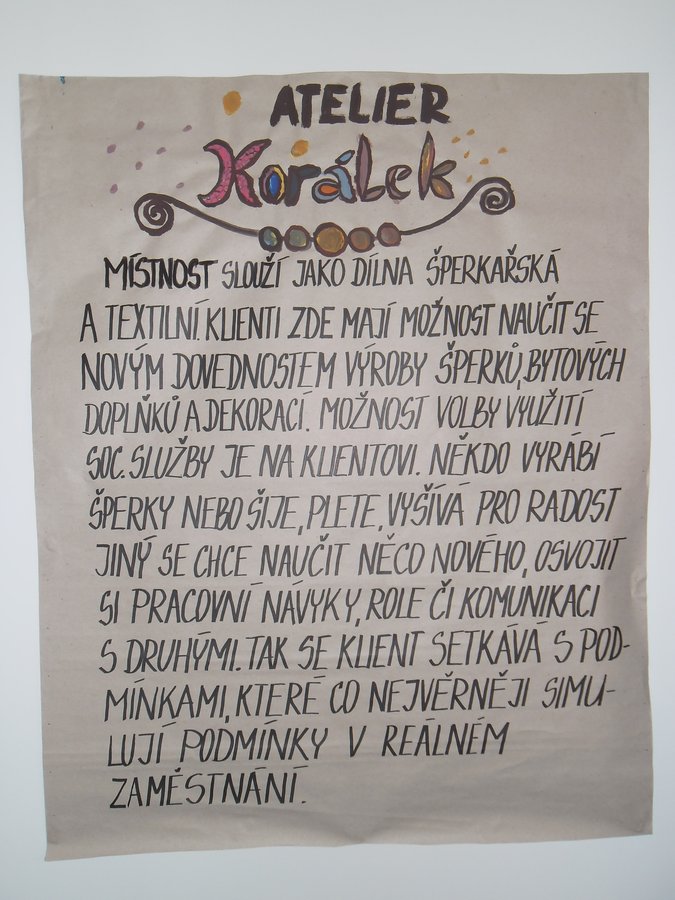 ATELIER
Korálek
MÍSTNOST SLOUŽÍ JAKO DÍLNA ŠPERKAŘSKÁ
A TEXTILNÍ. KLIENTI ZDE MAJÍ MOŽNOST NAUČIT SE
NOVÝM DOVEDNOSTEM VÝROBY ŠPERKŮ, BYTOVÝCH
DOPLŇKŮ A DEKORACÍ. MOŽNOST VOLBY VYUŽITÍ
SOC. SLUŽBY JE NA KLIENTOVI. NĚKDO VYRÁBÍ
ŠPERKY NEBO ŠIJE, PLETE, VYŠÍVÁ PRO RADOST
JINÝ SE CHCE NAUČIT NĚCO NOVÉHO, OSVOJIT
SI PRACOVNÍ NÁVYKY, ROLE ČI KOMUNIKACI
S DRUHÝMI. TAK SE KLIENT SETKÁVÁ S POD-
MÍNKAMI, KTERÉ CO NEJVĚRNĚJI SIMU-
LUJÍ PODMÍNKY V REÁLNÉM
ZAMĚSTNÁNÍ.